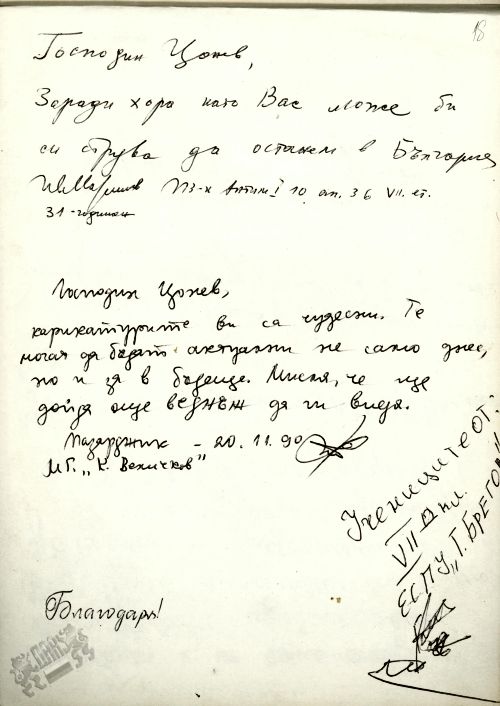 18
Господин Цонев,
Заради хора като Вас може би
си струва да останем в България
Пз-к Антим I 10 ап. 36 VII. ет.
31-годишен
Господин Цонев,
карикатурите ви са чудесни. Те
могат да бъдат актуални не само днес,
но и за в бъдеще. Мисля, че ще
дойда още веднъж да ги видя.
Пазарджик - 20.11.90
МГ. "К. Величков"
Учениците от:
VII Д кл.
ЕСПУ "Г. Брегов"
Благодаря!